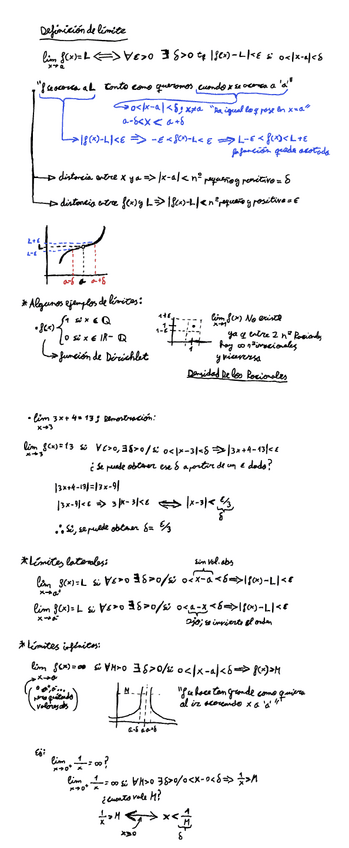 Definición de límite
lim f(x)=L ⟺ ∀ε>0 ∃δ>0 tq |f(x)-L|<ε si 0<|x-a|<δ
x→a
"f se acerca a L tanto como queramos cuando x se acerca a 'a'"
0<|x-a|<δ; x≠a "Da igual lo q pase en x=a"
a-δ<x<a+δ
|f(x)-L|<ε ⟹ -ε<f(x)-L<ε ⟹ L-ε<f(x)<L+ε
función queda acotada
distancia entre x y a ⟹ |x-a|< nº pequeño y positivo = δ
distancia entre f(x) y L ⟹ |f(x)-L|< nº pequeño y positivo = ε
L+ε
L
L-ε
a-δ a a+δ
* Algunos ejemplos de límites:
· f(x) { 1 si x∈Q
0 si x∈R-Q
función de Dirichlet
1+ε
1-ε
1
lim f(x) No existe
x→1
ya q entre 2 nº Racionales
hay ∞ nº irracionales
y viceversa
Densidad de los Racionales
· lim 3x+4=13; Demostración:
x→3
lim f(x)=13 si ∀ε>0, ∃δ>0/ si 0<|x-3|<δ ⟹ |3x+4-13|<ε
x→3
¿Se puede obtener ese δ a partir de un ε dado?
|3x+4-13|=|3x-9|
|3x-9|<ε ⟹ 3|x-3|<ε ⟺ |x-3|<ε/3
δ
∴ Sí, se puede obtener δ=ε/3
* Límites laterales:
sin val. abs
lim f(x)=L si ∀ε>0 ∃δ>0/ si 0<x-a<δ ⟹ |f(x)-L|<ε
x→a⁺
lim f(x)=L si ∀ε>0 ∃δ>0/ si 0<a-x<δ ⟹ |f(x)-L|<ε
x→a⁻
Ojo; se invierte el orden
* Límites infinitos:
lim f(x)=∞ si ∀M>0 ∃δ>0/ si 0<|x-a|<δ ⟹ f(x)>M
x→a
M
a-δ a a+δ
"f se hace tan grande como quiera
al ir acercando x a 'a'"
Ej:
lim 1/x=∞?
x→0⁺
lim 1/x=∞ si ∀M>0 ∃δ>0/0<x-0<δ ⟹ 1/x>M
x→0⁺
¿cuanto vale M?
1/x>M ⟺ x<1/M
x>0
δ